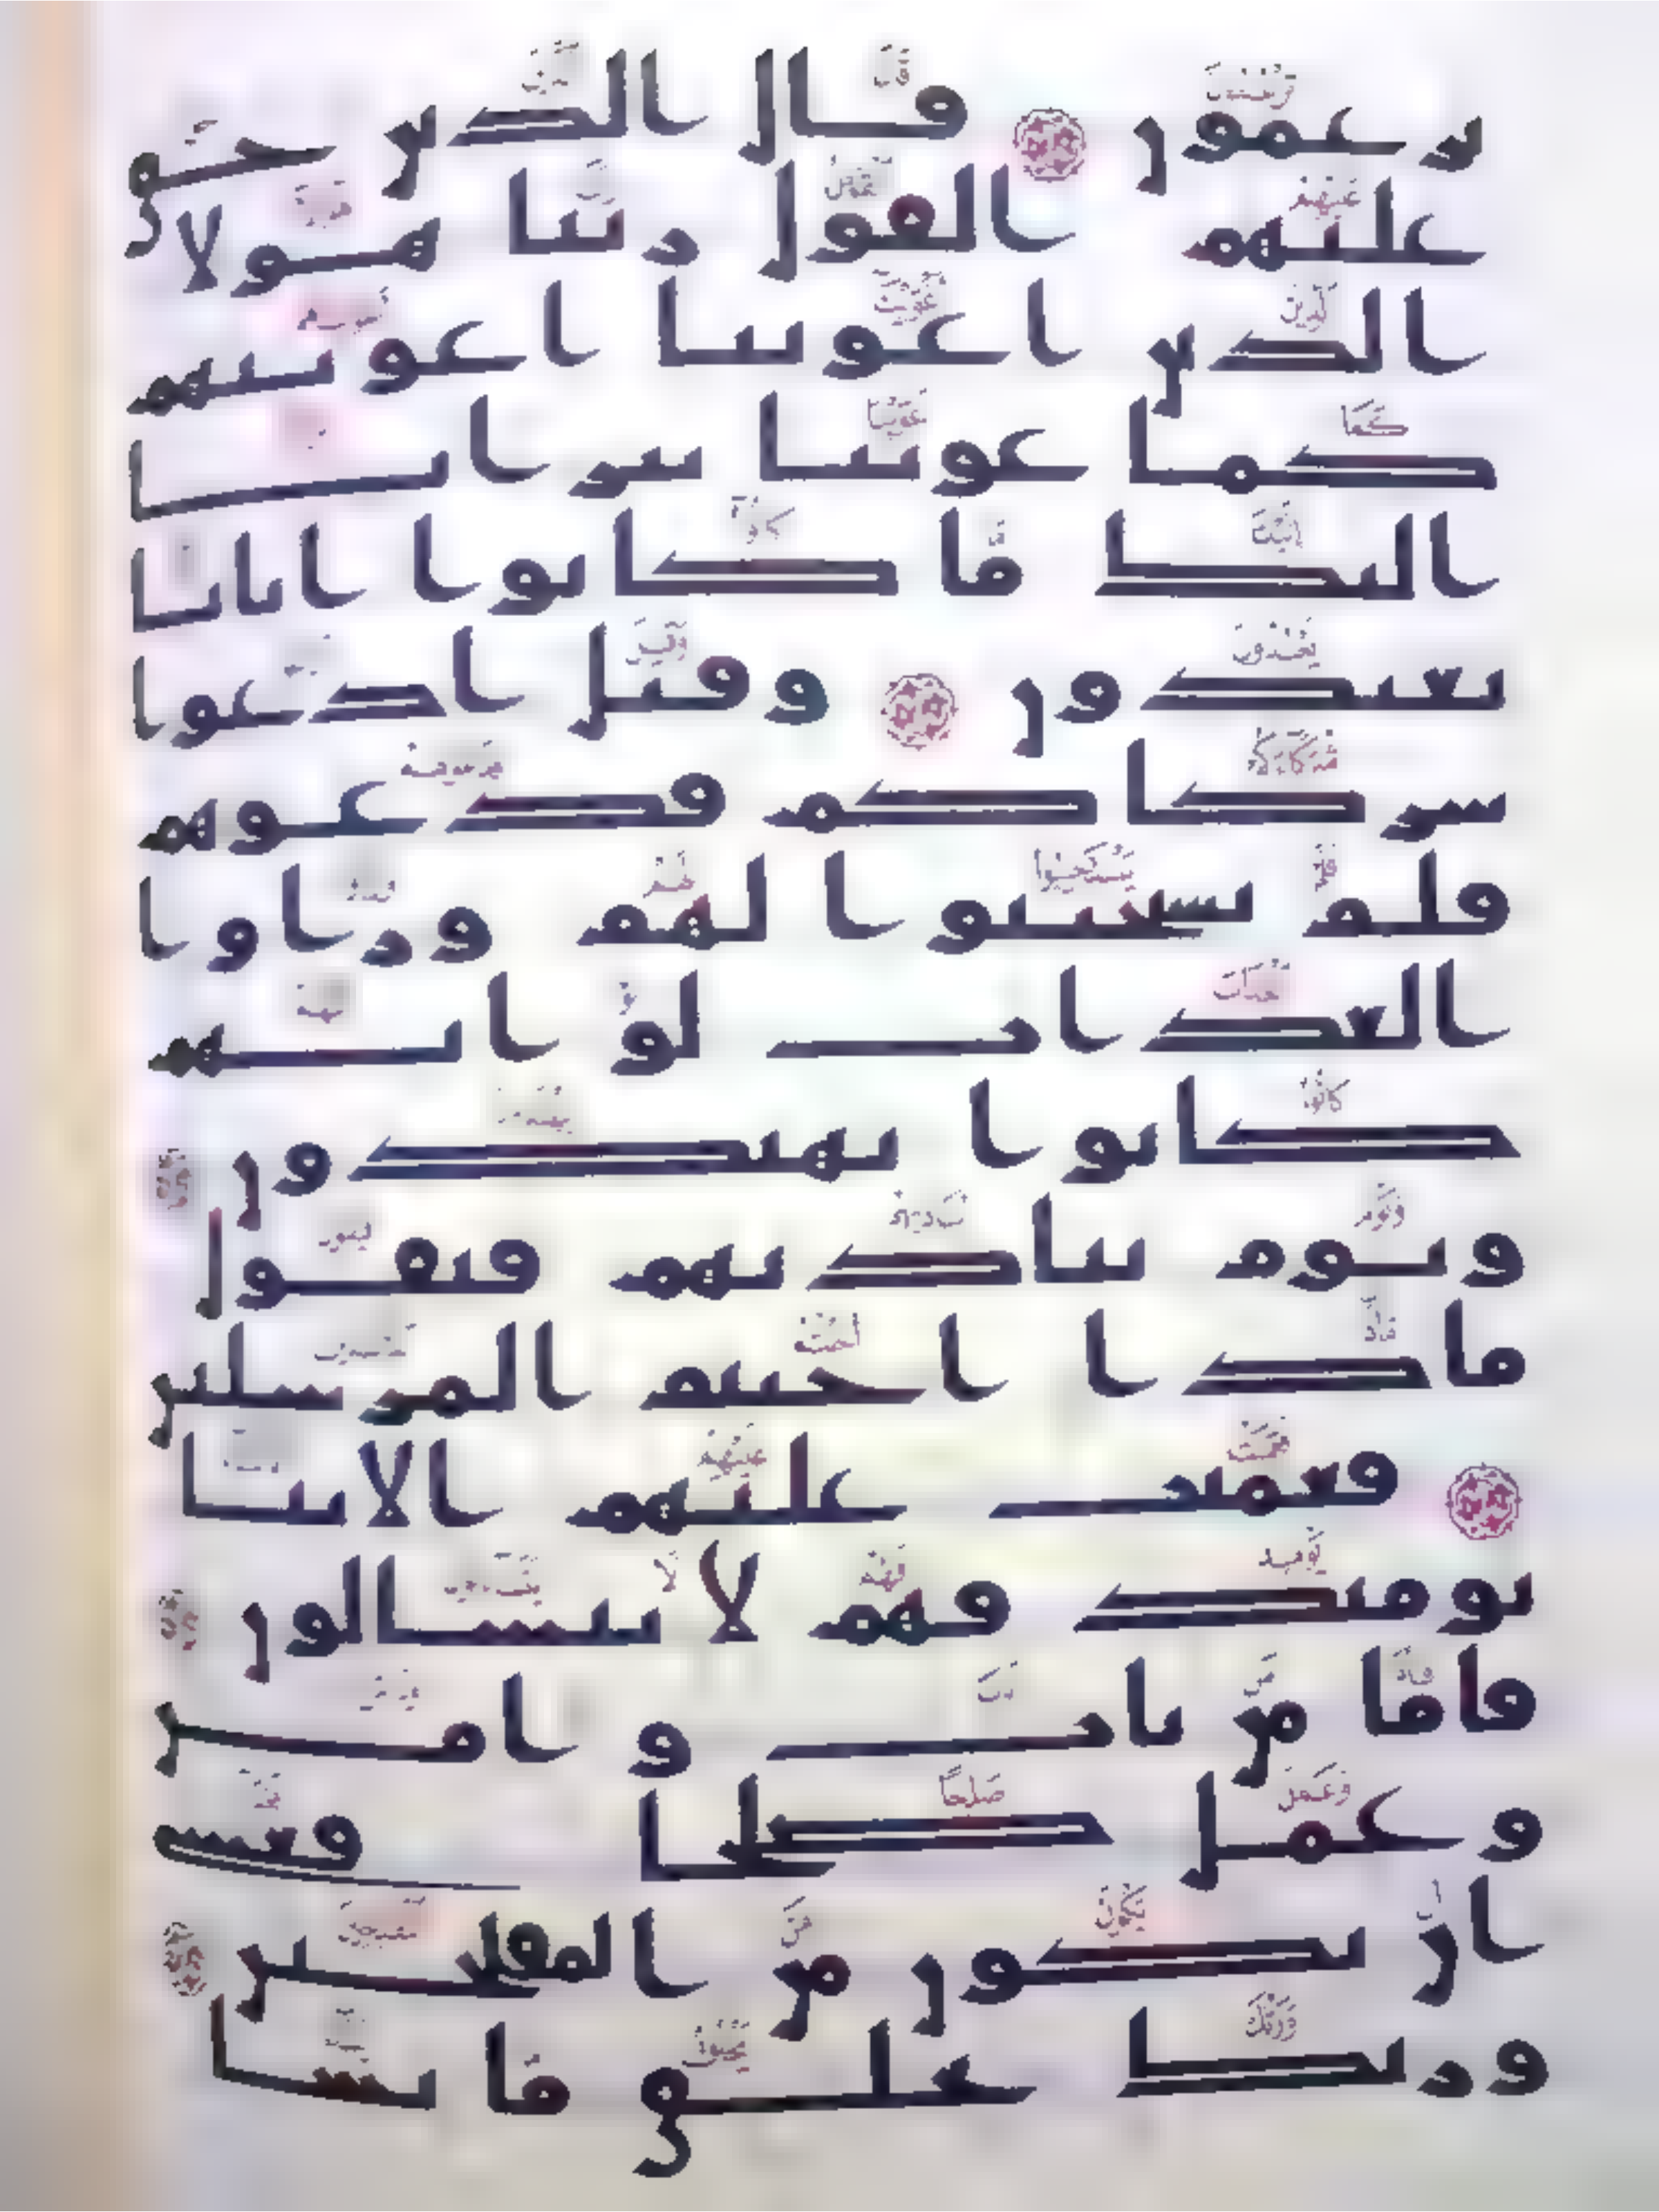 تزعمون قال الذين حق
عليهم القول ربنا هولا
الذين اغوينا اغوينهم
كما غوينا تبرانا
اليك ما كانوا ايانا
يعبدون وقيل ادعوا
شركاكم فدعوهم
فلم يستجيبوا لهم وراوا
العذاب لو انهم
كانوا يهتدون
ويوم يناديهم فيقول
ماذا اجبتم المرسلين
فعميت عليهم الانبا
يومئذ فهم لا يتسالون
فاما من تاب و امن
و عمل صلحا فعسى
ان يكون من المفلحين
وربك يخلق ما يشا